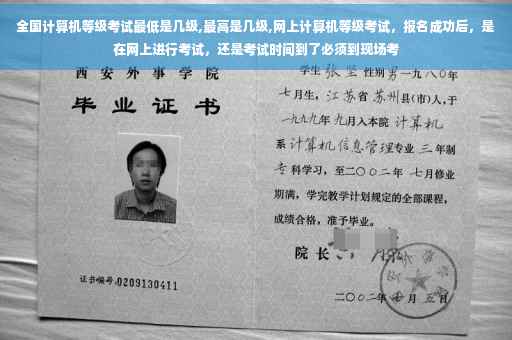 全国计算机等级考试最低是几级,最高是几级,网上计算机等级考试，报名成功后，是
在网上进行考试，还是考试时间到了必须到现场考
西安外事学院
毕业证书
证书编号:0209130411
学生 张坚 性别 男 一九八〇年
七月生，江苏省 苏州县(市)人,于
一九九九年 九月入本院 计算机
系 计算机信息管理专业 三年制
专科学习，至二〇〇二年 七月修业
期满，学完教学计划规定的全部课程，
成绩合格，准予毕业。
院长
二〇〇二年 七月 五日